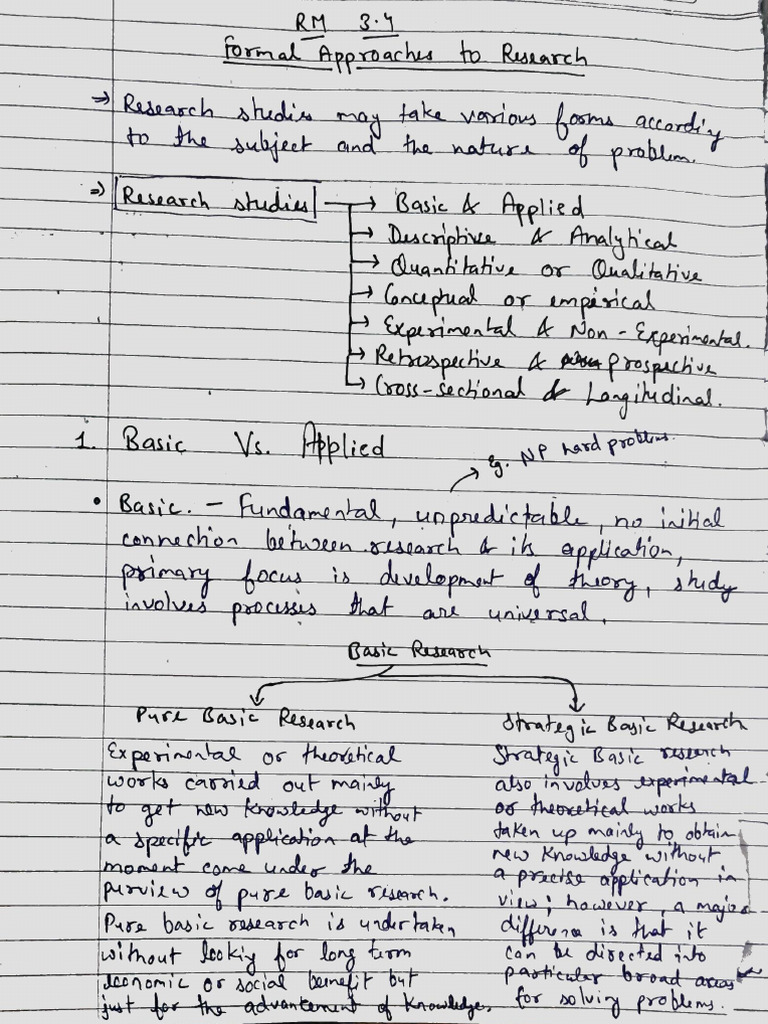 RM 3.4
Formal Approaches to Research
⇒ Research studies may take various forms accordiy
to the subject and the nature of problem.
⇒ Research studies → Basic & Applied
→ Descriptive & Analytical
→ Quantitative or Qualitative
→ Conceptual or empirical
→ Experimental & Non-Experimental.
→ Retrospective & prospective
→ Cross-sectional & Longitudinal.
1. Basic Vs. Applied
→ Eg. NP hard problem.
• Basic. – Fundamental, unpredictable, no initial
connection between research & its application,
primary focus is development of theory, study
involves processes that are universal.
Basic Research
Pure Basic Research
Experimental or theoretical
works carried out mainly
to get new knowledge without
a specific application at the
moment come under the
purview of pure basic research.
Pure basic research is undertaken
without lookiy for long term
economic or social benefit but
just for the advancement of knowledge.
Strategic Basic Research
Strategic Basic research
also involves experimental
or theoretical works
taken up mainly to obtain
new knowledge without
a precise application in
view; however, a major
difference is that it
can be directed into
particular broad areas
for solving problems.